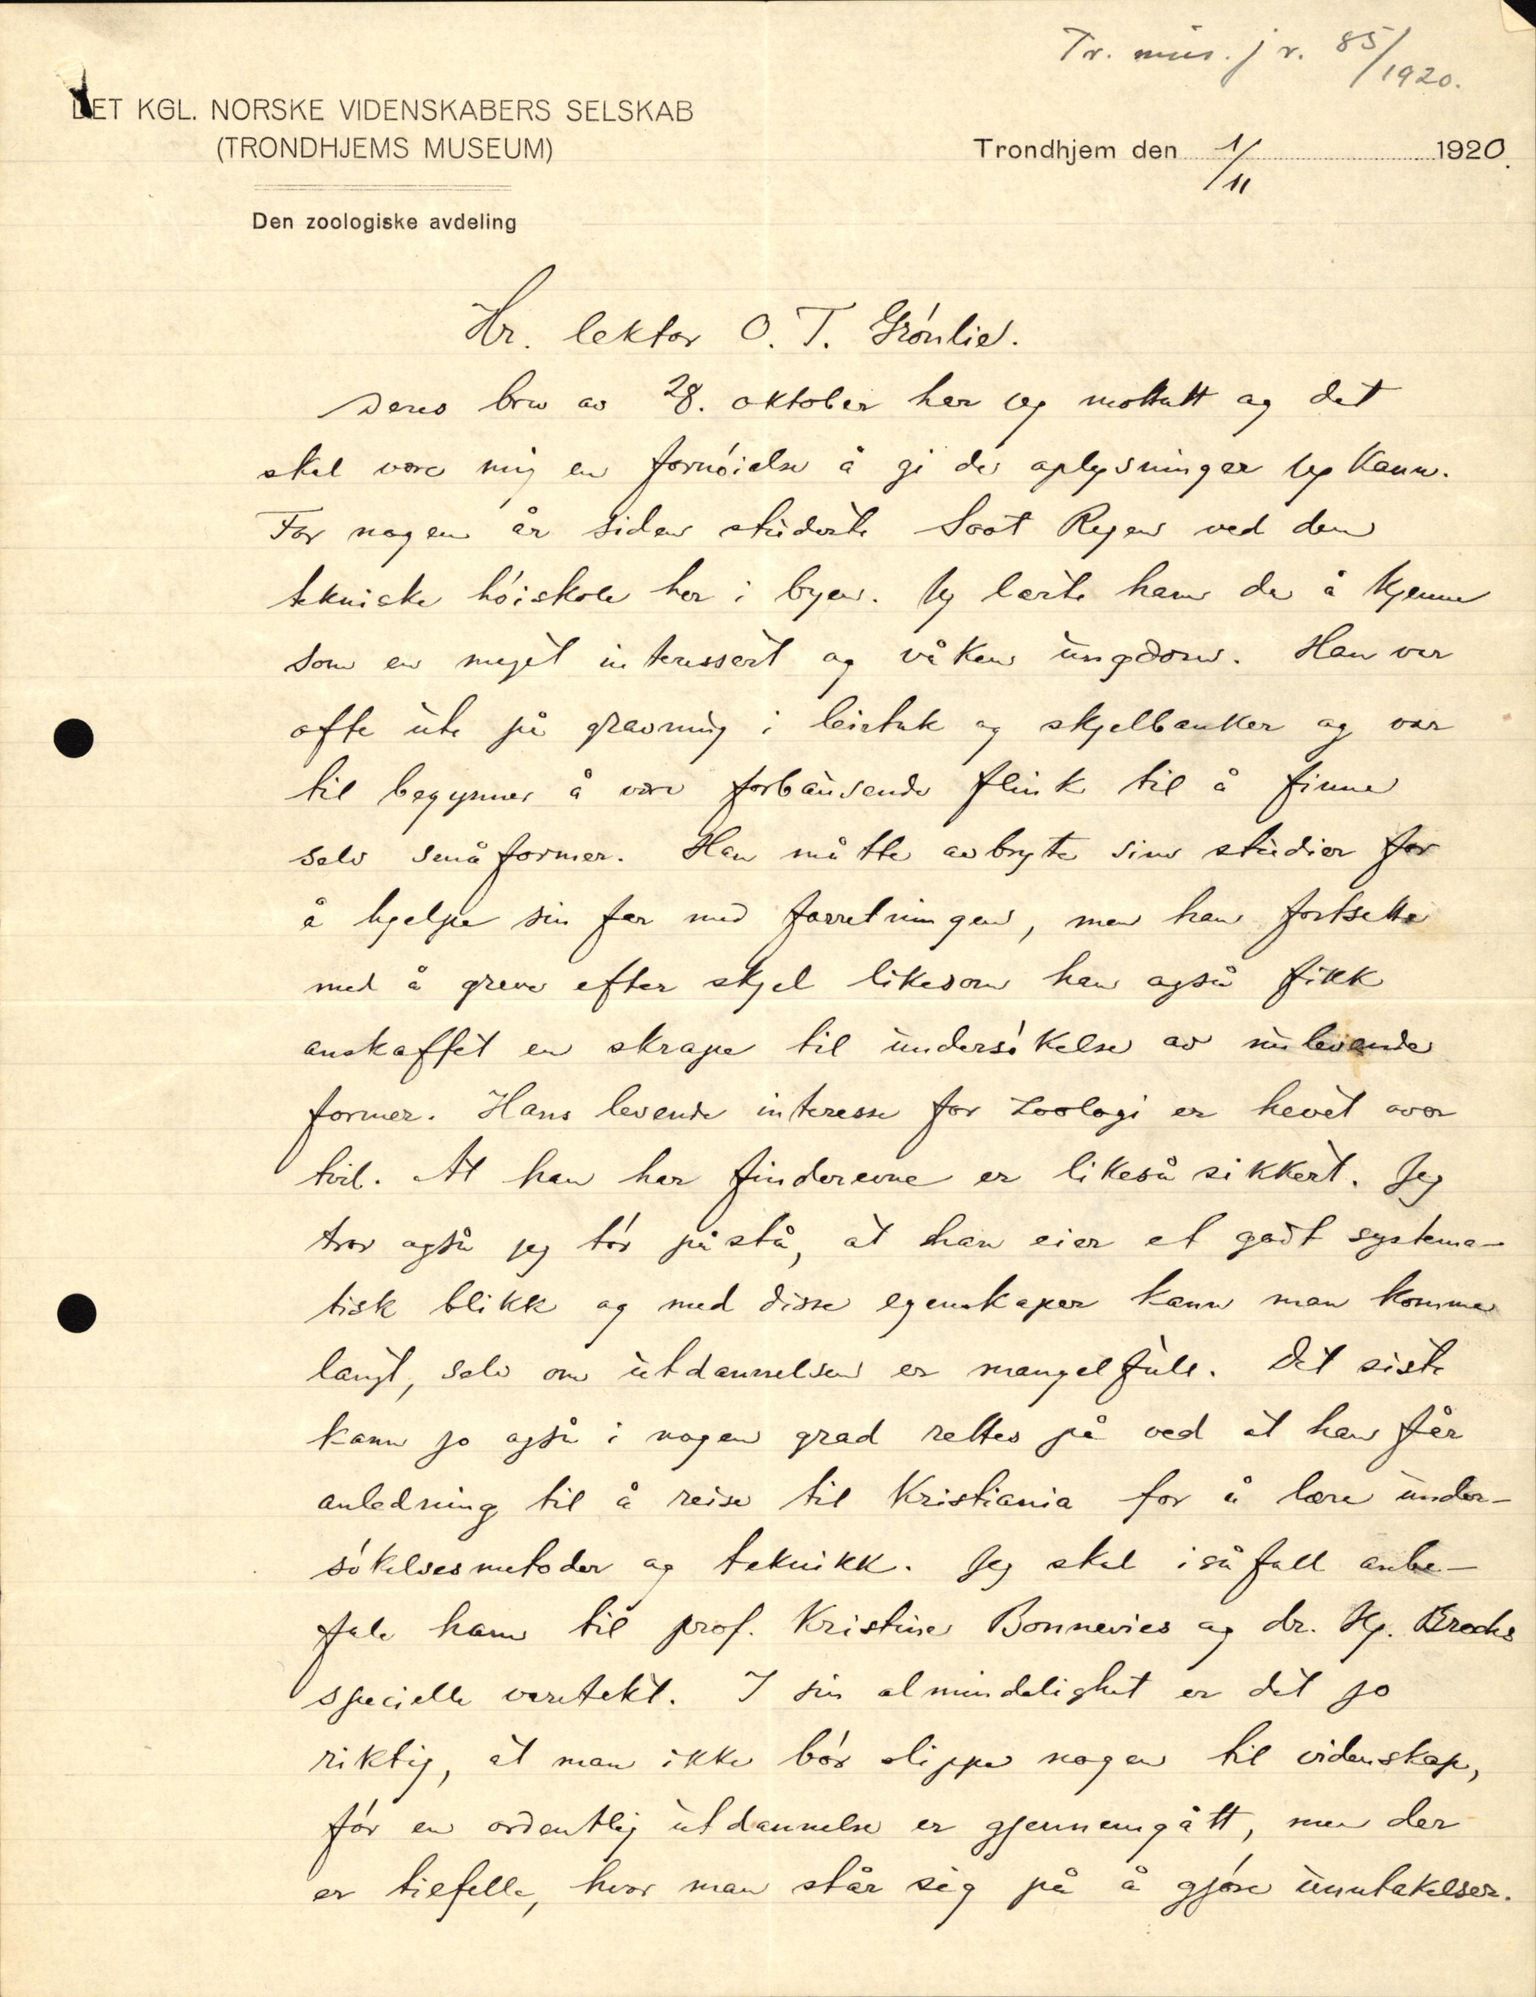 Tr. mus. jr. 85/1920.
DET KGL. NORSKE VIDENSKABERS SELSKAB
(TRONDHJEMS MUSEUM)
Trondhjem den 1/11 1920.
Den zoologiske avdeling
Hr. lektor O. T. Grónlie.
Deres brev av 28. oktober har jeg mottatt og det
skal være mig en fornóielse å gi de oplysninger jeg kann.
For nogen år siden studerte Soot Ryen ved den
tekniske hóiskole her i byen. Jeg lærte ham da å kjenne
som en meget interessert og våken ungdom. Han var
ofte ute på gravning i leirtak og skjelbanker og var
til begynner å være forbausende flink til å finne
selv småformer. Han måtte avbryte sine studier for
å hjelpe sin far med forretningen, men han fortsette
med å grave efter skjel likesom han også fikk
anskaffet en skrape til undersókelse av nulevende
former. Hans levende interesse for zoologi er hevet over
tvil. At han har finderevne er likeså sikkert. Jeg
tror også jeg tór påstå, at han eier et godt systema-
tisk blikk og med disse egenskaper kann man komme
langt, selv om utdannelsen er mangelfull. Det siste
kann jo også i nogen grad rettes på ved at han får
anledning til å reise til Kristiania for å lære under-
sókelsesmetoder og teknikk. Jeg skal i så fall anbe-
fale ham til prof. Kristine Bonnevies og dr. Hj. Brochs
specielle varetekt. I sin almindelighet er det jo
riktig, at man ikke bór slippe nogen til videnskap,
fór en ordentlig utdannelse er gjennemgått, men der
er tilfelle, hvor man står sig på å gjóre unntakelser.